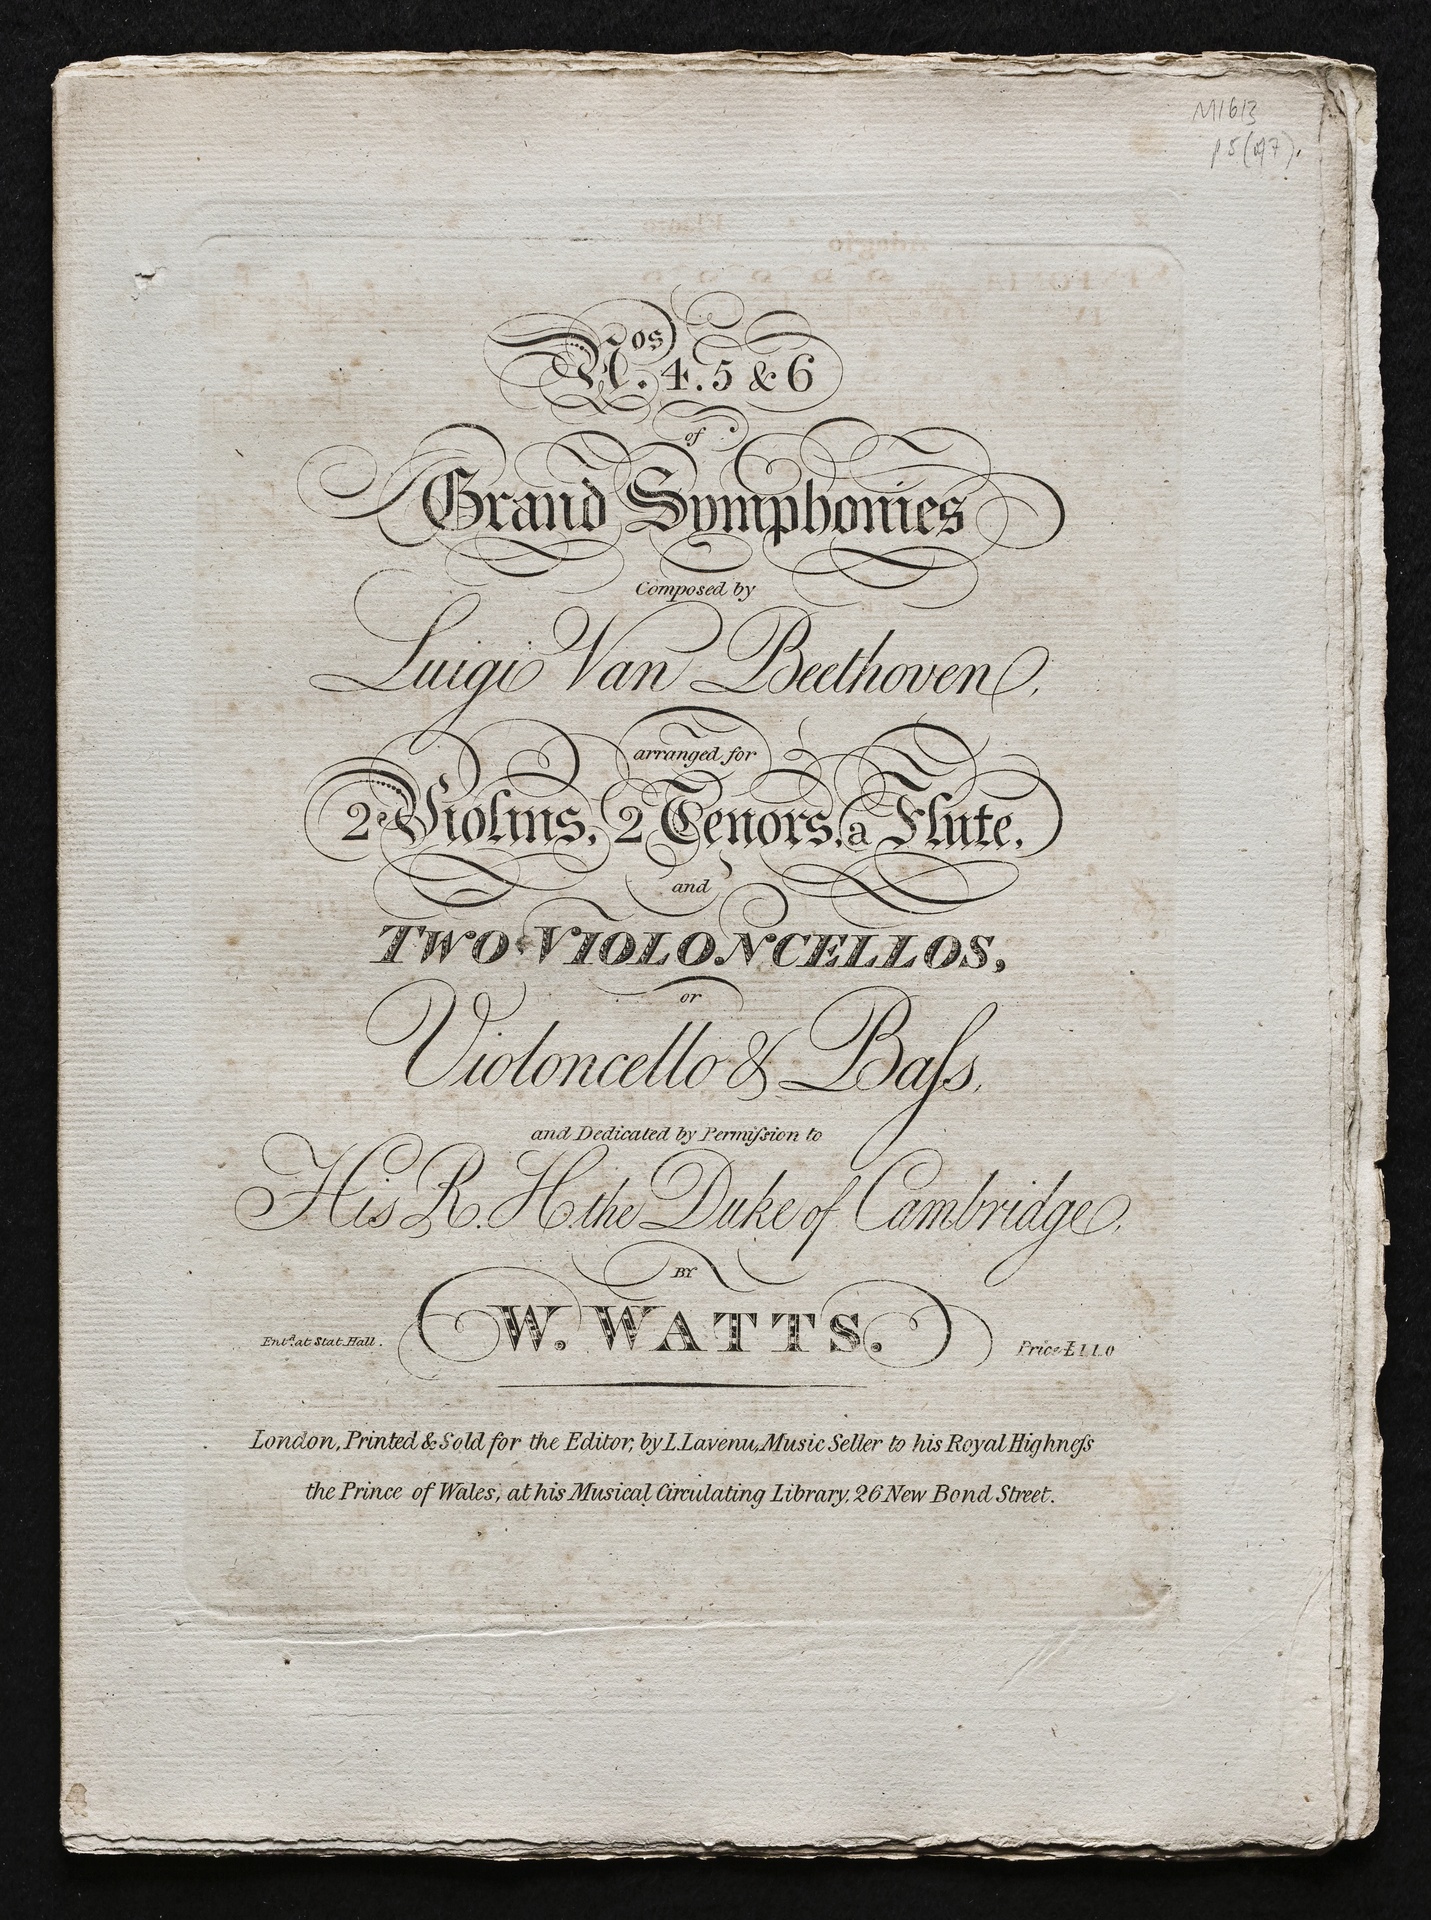 M1613
p 5 (of 7).
Nos. 4. 5 & 6
of
Grand Symphonies
Composed by
Luigi Van Beethoven,
arranged for
2 Violins, 2 Tenors, a Flute,
and
TWO VIOLONCELLOS,
or
Violoncello & Baſs,
and Dedicated by Permiſsion to
His R. H. the Duke of Cambridge,
BY
W. WATTS.
Entd. at Stat. Hall.
Price £1.1.0
London, Printed & Sold for the Editor, by L. Lavenu, Music Seller to his Royal Highneſs
the Prince of Wales, at his Musical Circulating Library, 26 New Bond Street.